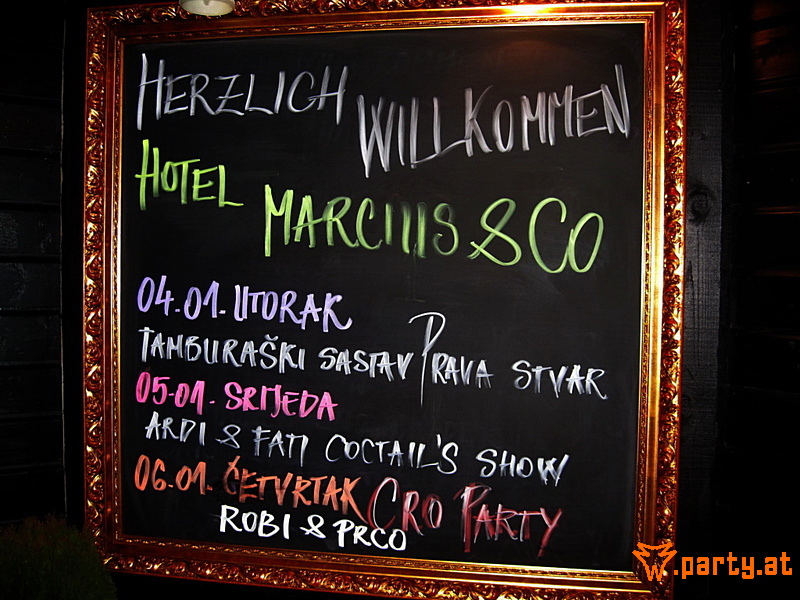 HERZLICH WILLKOMMEN
HOTEL MARCIUS & CO
04.01. UTORAK
TAMBURAŠKI SASTAV PRAVA STVAR
05.01. SRIJEDA
ARDI & FATI COCTAIL'S SHOW
06.01. ČETVRTAK CRO PARTY
ROBI & PRCO
.party.at